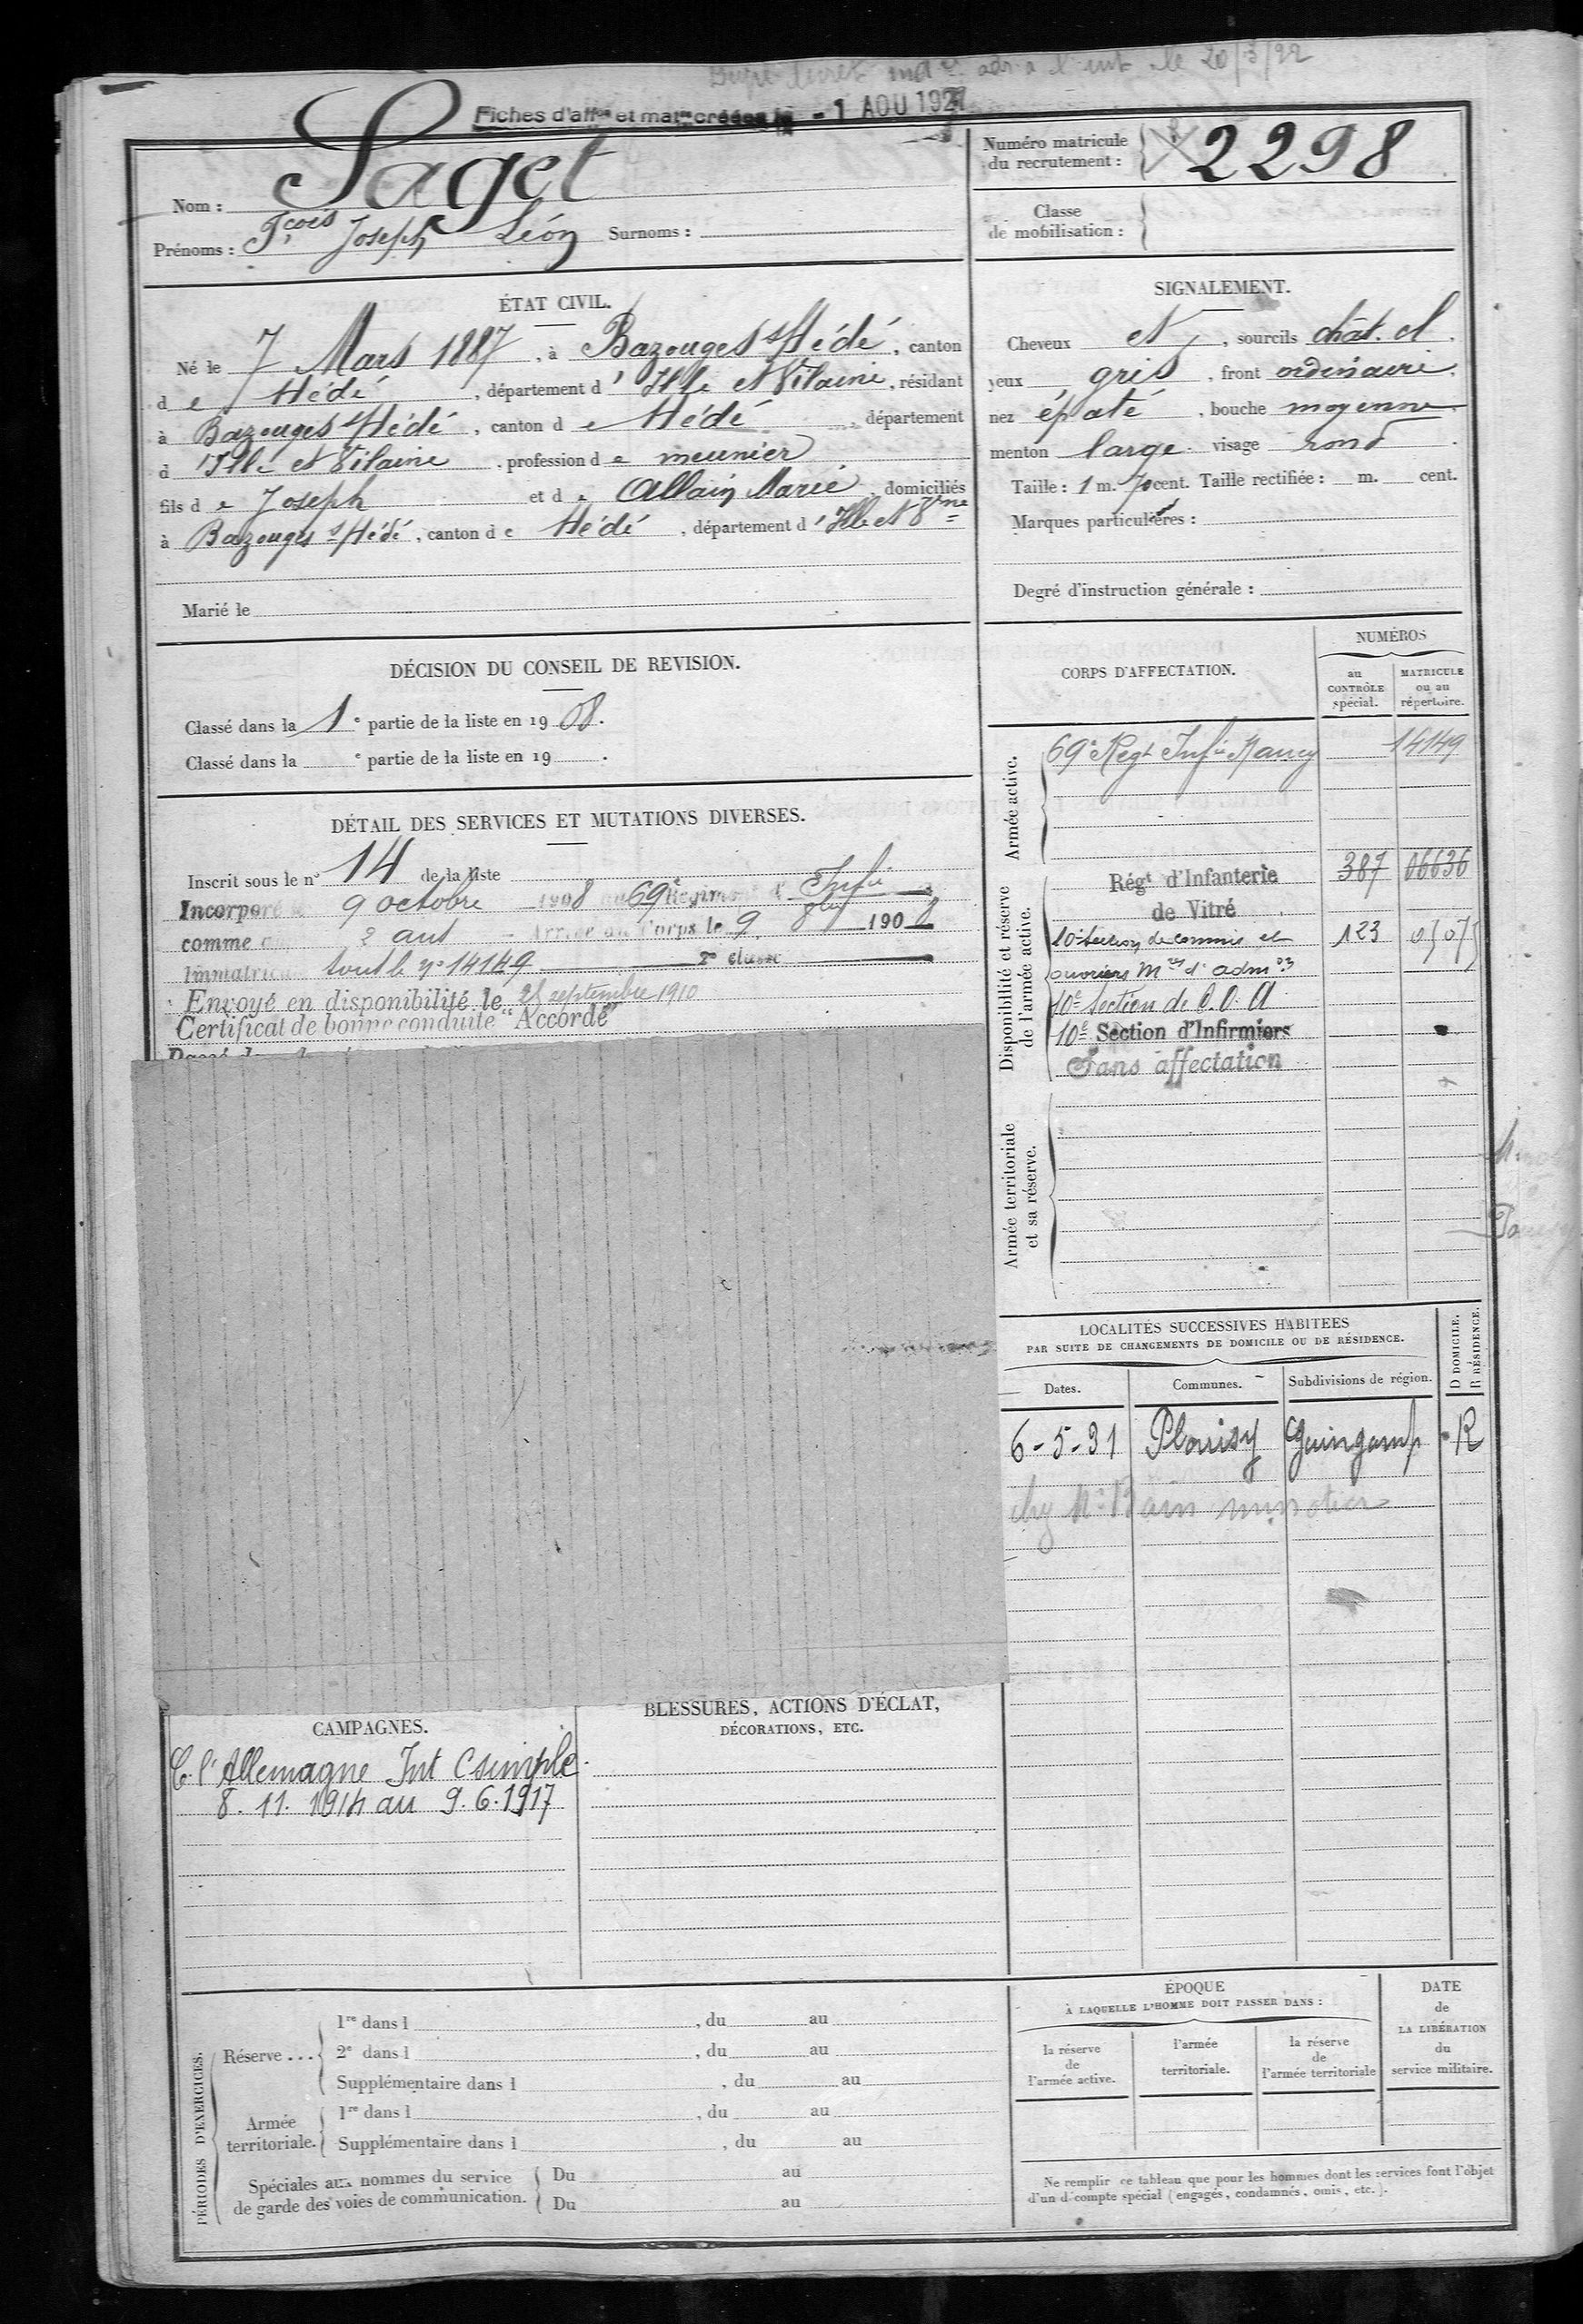 le 20/3/22
Fiches d'aff^on et mat^le créées le - 1 AOU 1927
Nom : Saget
Prénoms : Fçois Joseph Léon Surnoms :
Numéro matricule du recrutement : 2298
Classe de mobilisation :
ÉTAT CIVIL.
Né le 7 Mars 1887, à Bazouges s/Hédé, canton
d e Hédé, département d'Ille et Vilaine, résidant
à Bazouges s/Hédé, canton d e Hédé, département
d'Ille et Vilaine, profession d e meunier
fils d e Joseph et d e Allain Marie domiciliés
à Bazouges s/Hédé, canton d e Hédé, département d'Ille et V^ne
Marié le
SIGNALEMENT.
Cheveux et, sourcils chât. cl.
yeux gris, front ordinaire,
nez épaté, bouche moyenne
menton large visage rond.
Taille : 1 m. 70 cent. Taille rectifiée : m. cent.
Marques particulières :
Degré d'instruction générale :
DÉCISION DU CONSEIL DE REVISION.
Classé dans la 1e partie de la liste en 1908.
Classé dans la e partie de la liste en 19 .
DÉTAIL DES SERVICES ET MUTATIONS DIVERSES.
Inscrit sous le n° 14 de la liste
Incorporé 9 octobre 1908 au 69e Régiment d'Inf^ie
comme 2 ans Arrivé au Corps le 9 8bre 1908
Immatriculé sous le n° 14149 2e classe
Envoyé en disponibilité le 25 septembre 1910
Certificat de bonne conduite "Accordé"
CORPS D'AFFECTATION.
NUMÉROS
au CONTRÔLE spécial.
MATRICULE ou au répertoire.
Armée active.
69e Reg^t Inf^ie Nancy 14149
Disponibilité et réserve de l'armée active.
Rég^t d'Infanterie 387 06636
de Vitré
10e Section de commis et 123 05075
ouvriers M^res d'adm^on
10e Section de C.O.A
10e Section d'Infirmiers
Sans affectation
Armée territoriale et sa réserve.
LOCALITÉS SUCCESSIVES HABITEES
PAR SUITE DE CHANGEMENTS DE DOMICILE OU DE RÉSIDENCE.
Dates. Communes. Subdivisions de région. D DOMICILE. R RÉSIDENCE.
6-5-31 Plouisy Guingamp R
chez Mr Bain minotier
CAMPAGNES.
C. l'Allemagne Int C simple
8. 11. 1914 au 9. 6. 1917
BLESSURES, ACTIONS D'ÉCLAT,
DÉCORATIONS, ETC.
PÉRIODES D'EXERCICES.
Réserve ...
1re dans l , du au
2e dans l , du au
Supplémentaire dans l , du au
Armée territoriale.
1re dans l , du au
Supplémentaire dans l , du au
Spéciales aux hommes du service
de garde des voies de communication.
Du au
Du au
ÉPOQUE
À LAQUELLE L'HOMME DOIT PASSER DANS :
la réserve de l'armée active.
l'armée territoriale.
la réserve de l'armée territoriale
DATE de LA LIBÉRATION du service militaire.
Ne remplir ce tableau que pour les hommes dont les services font l'objet
d'un décompte spécial (engagés, condamnés, omis, etc.).